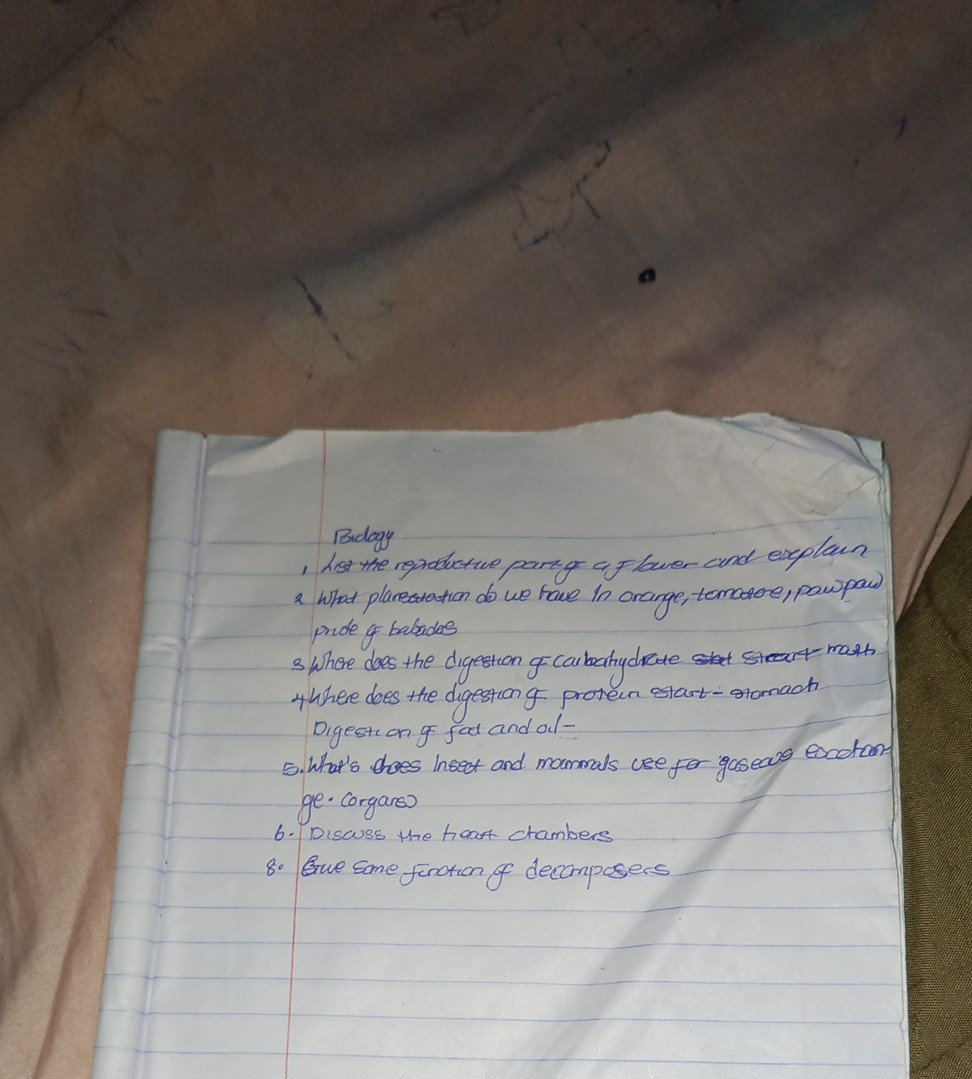 Biology
1 List the reproductive parts of a flower and explain
2 What planectation do we have In orange, tomatoe, pawpaw
pride of babados
3 Where does the digestion of carbohydrate start mouth
4 Where does the digestion of protein start - stomach
Digestion of fat and oil -
5. What's does Insect and mammals use for gaseous exchan
ge. (organs)
6. Discuss the heart chambers
8. Give some function of decomposers